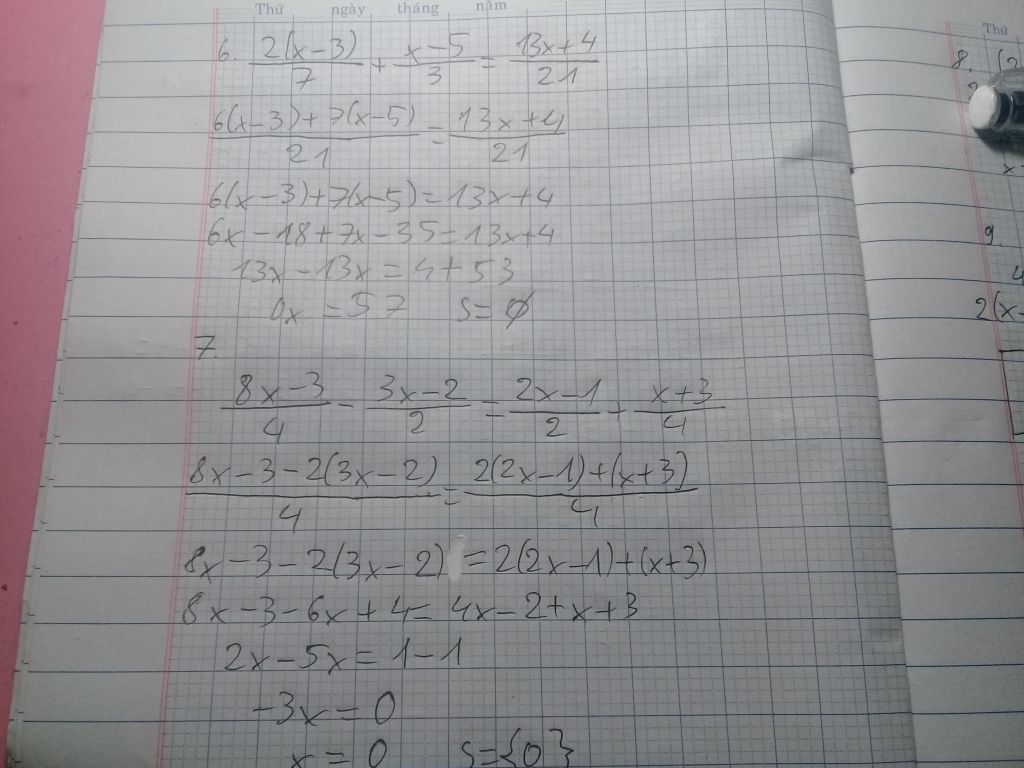 Thứ ngày tháng năm
6. 2(x-3)/7 + x-5/3 = 13x+4/21
6(x-3)+7(x-5)/21 = 13x+4/21
6(x-3)+7(x-5)=13x+4
6x-18+7x-35=13x+4
13x-13x=4+53
0x=57 S=∅
7.
8x-3/4 - 3x-2/2 = 2x-1/2 + x+3/4
8x-3-2(3x-2)/4 = 2(2x-1)+(x+3)/4
8x-3-2(3x-2)=2(2x-1)+(x+3)
8x-3-6x+4=4x-2+x+3
2x-5x=1-1
-3x=0
x=0 S={0}
Thứ
8. (2
x
9.
4
2(x-